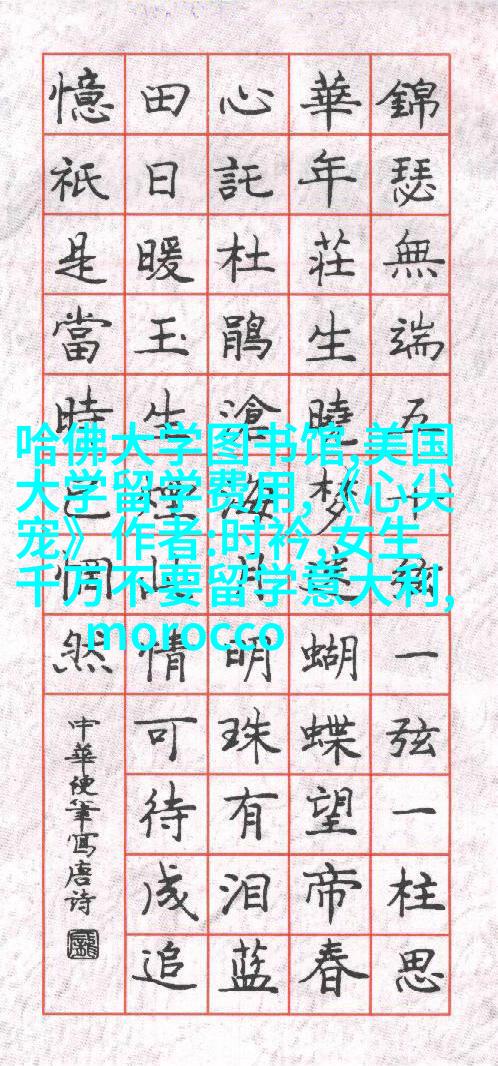 錦瑟無端五十弦一弦一柱思
華年莊生曉梦迷蝴蝶望帝春
心託杜鹃滄海月明珠有泪蓝
田日暖玉生煙此情可待成追
憶祇是當時已惘然
中華硬筆寫唐诗
哈佛大学图书馆,美国
大学留学费用,《心尖
宠》作者:时衿,女生
千万不要留学意大利,
morocco